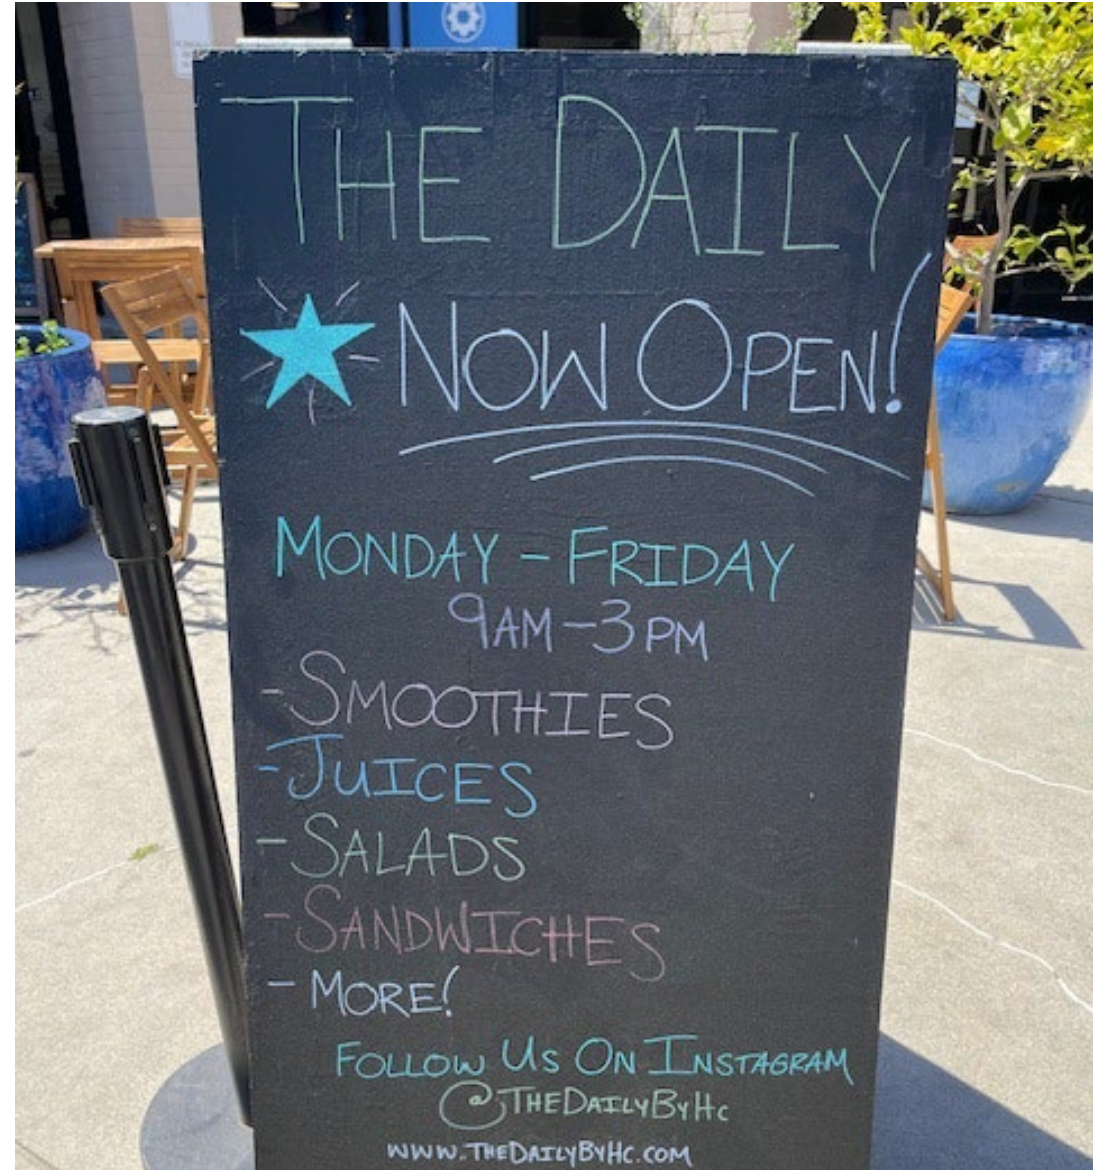 THE DAILY
NOW OPEN!
MONDAY - FRIDAY
9AM-3PM
-SMOOTHIES
-JUICES
-SALADS
-SANDWICHES
-MORE!
FOLLOW US ON INSTAGRAM
@THEDAILYBYHC
WWW.THEDAILYBYHC.COM